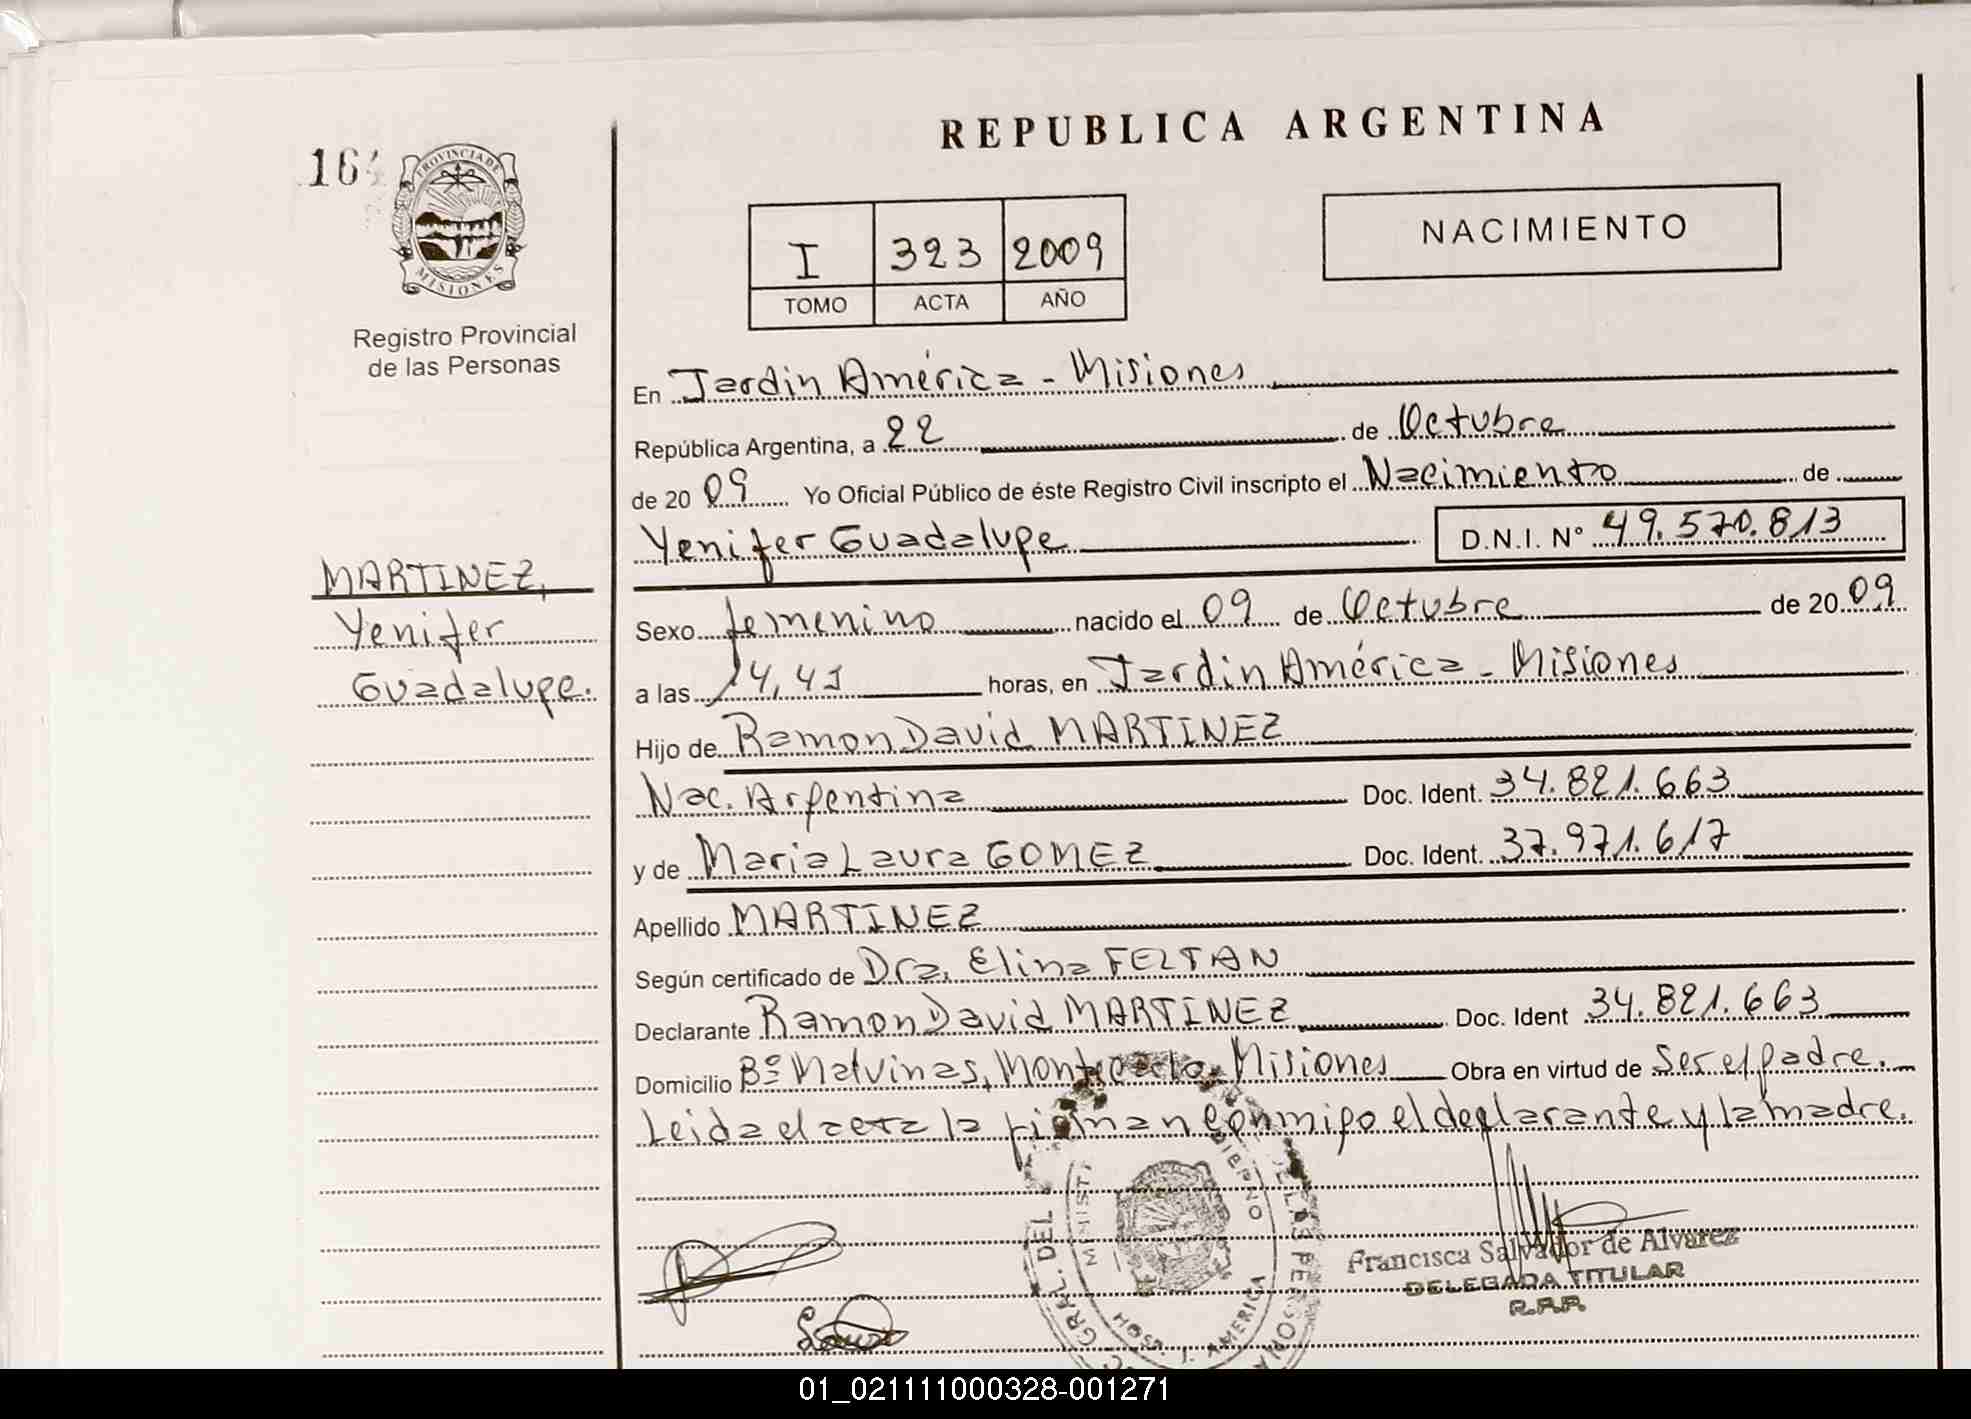 REPUBLICA ARGENTINA
16
PROVINCIA DE
MISIONES
Registro Provincial
de las Personas
I 323 2009
TOMO ACTA AÑO
NACIMIENTO
En Jardin América - Misiones
República Argentina, a 22 de Octubre
de 20 09 Yo Oficial Público de éste Registro Civil inscripto el Nacimiento de
Yenifer Guadalupe D.N.I. N° 49.570.813
MARTINEZ,
Yenifer
Guadalupe.
Sexo femenino nacido el 09 de Octubre de 20 09
a las 14,41 horas, en Jardin América - Misiones
Hijo de Ramon David MARTINEZ
Nac. Argentina Doc. Ident. 34.821.663
y de Maria Laura GOMEZ Doc. Ident. 37.971.617
Apellido MARTINEZ
Según certificado de Dra. Elina FELTAN
Declarante Ramon David MARTINEZ Doc. Ident 34.821.663
Domicilio B° Malvinas, Montecarlo Misiones Obra en virtud de Ser el padre.
Leida el acta la firman conmigo el declarante y la madre.
Francisca Salvador de Alvarez
DELEGADA TITULAR
R.P.P.
GRAL. DEL DE LAS PERSONA
AMERICA
01_021111000328-001271